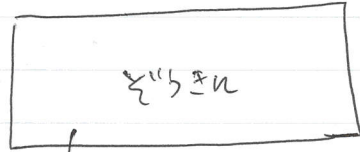 ぞうきん